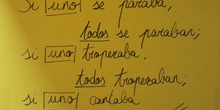 Si uno se paraba,
todos se paraban;
si uno tropezaba,
todos tropezaban;
si uno cantaba